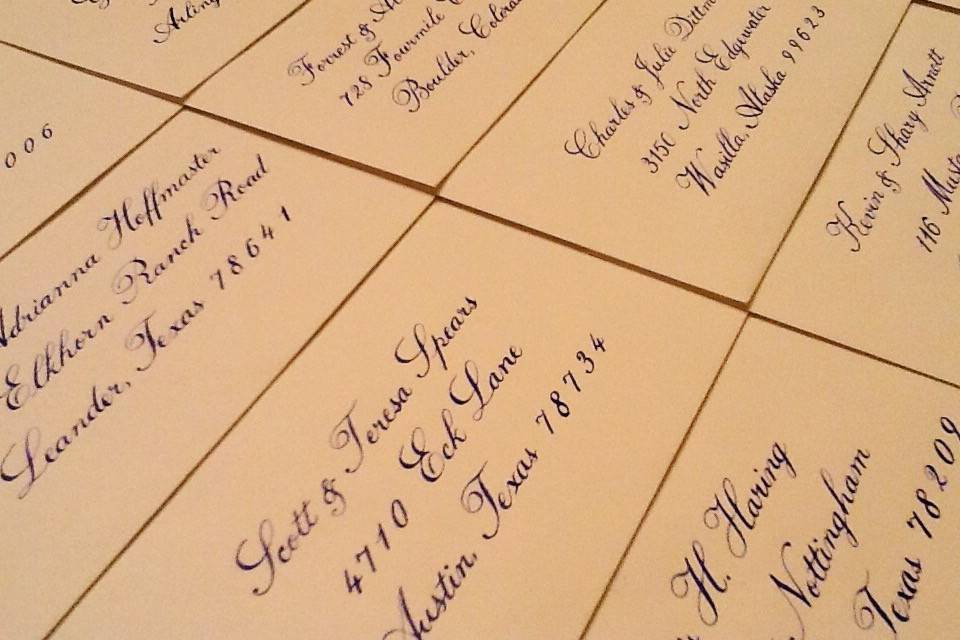 Forrest &
728 Fourmile
Boulder,
Charles & Julie
3150 North Edgewater
Wasilla, Alaska 99623
Kevin & Shary Arnott
116
006
Adrianna Hoffmaster
Elkhorn Ranch Road
Leander, Texas 78641
Scott & Teresa Spears
4710 Eck Lane
Austin, Texas 78734
H. Haring
Nottingham
Texas 78209